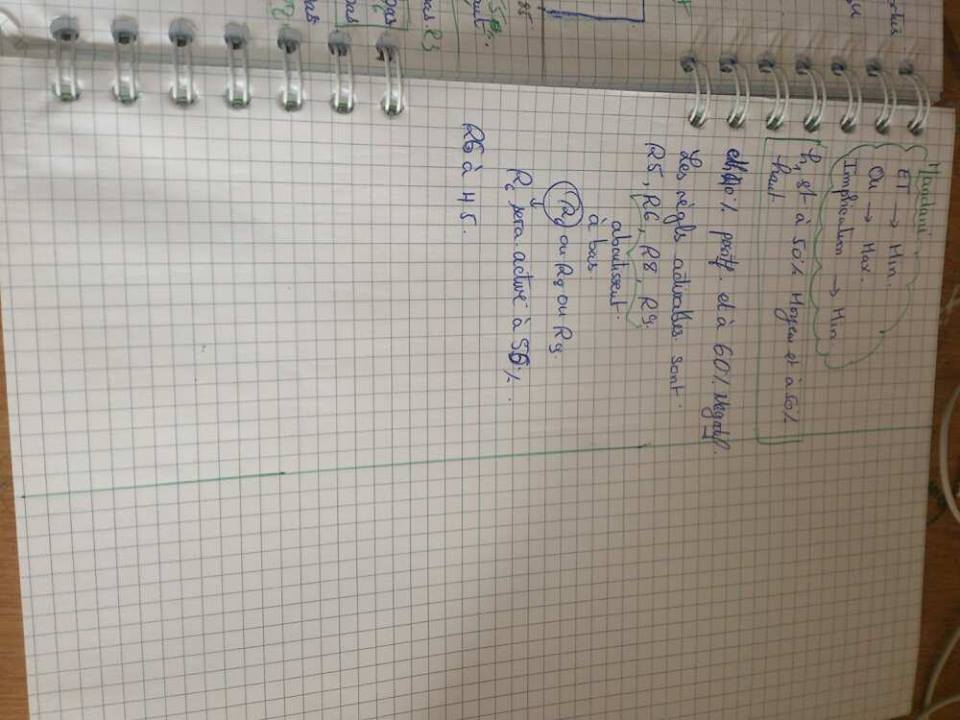 Mandani
ET → Min.
Ou → Max.
Implication → Min
h1 st à 50% Moyen et à 50%
haut
0% positif et à 60% Negatif.
Les règls activables sont
R5, R6, R8, R9.
aboutissent
à bas.
R6 ou R8 ou R9.
R6 sera activé à 50%.
R6 à 45.
85
bas R3
bas
bas